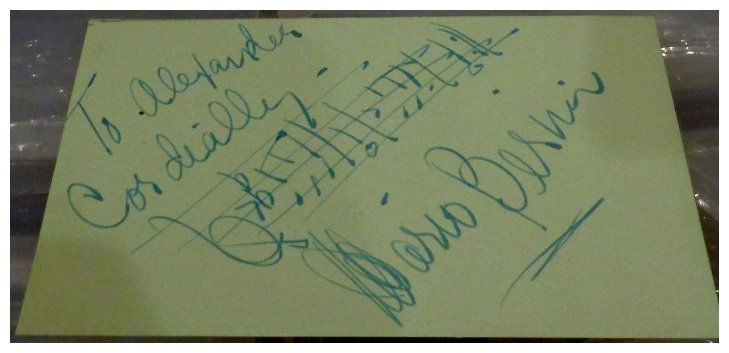 To Alexander
Cordially,
Mario Bernini